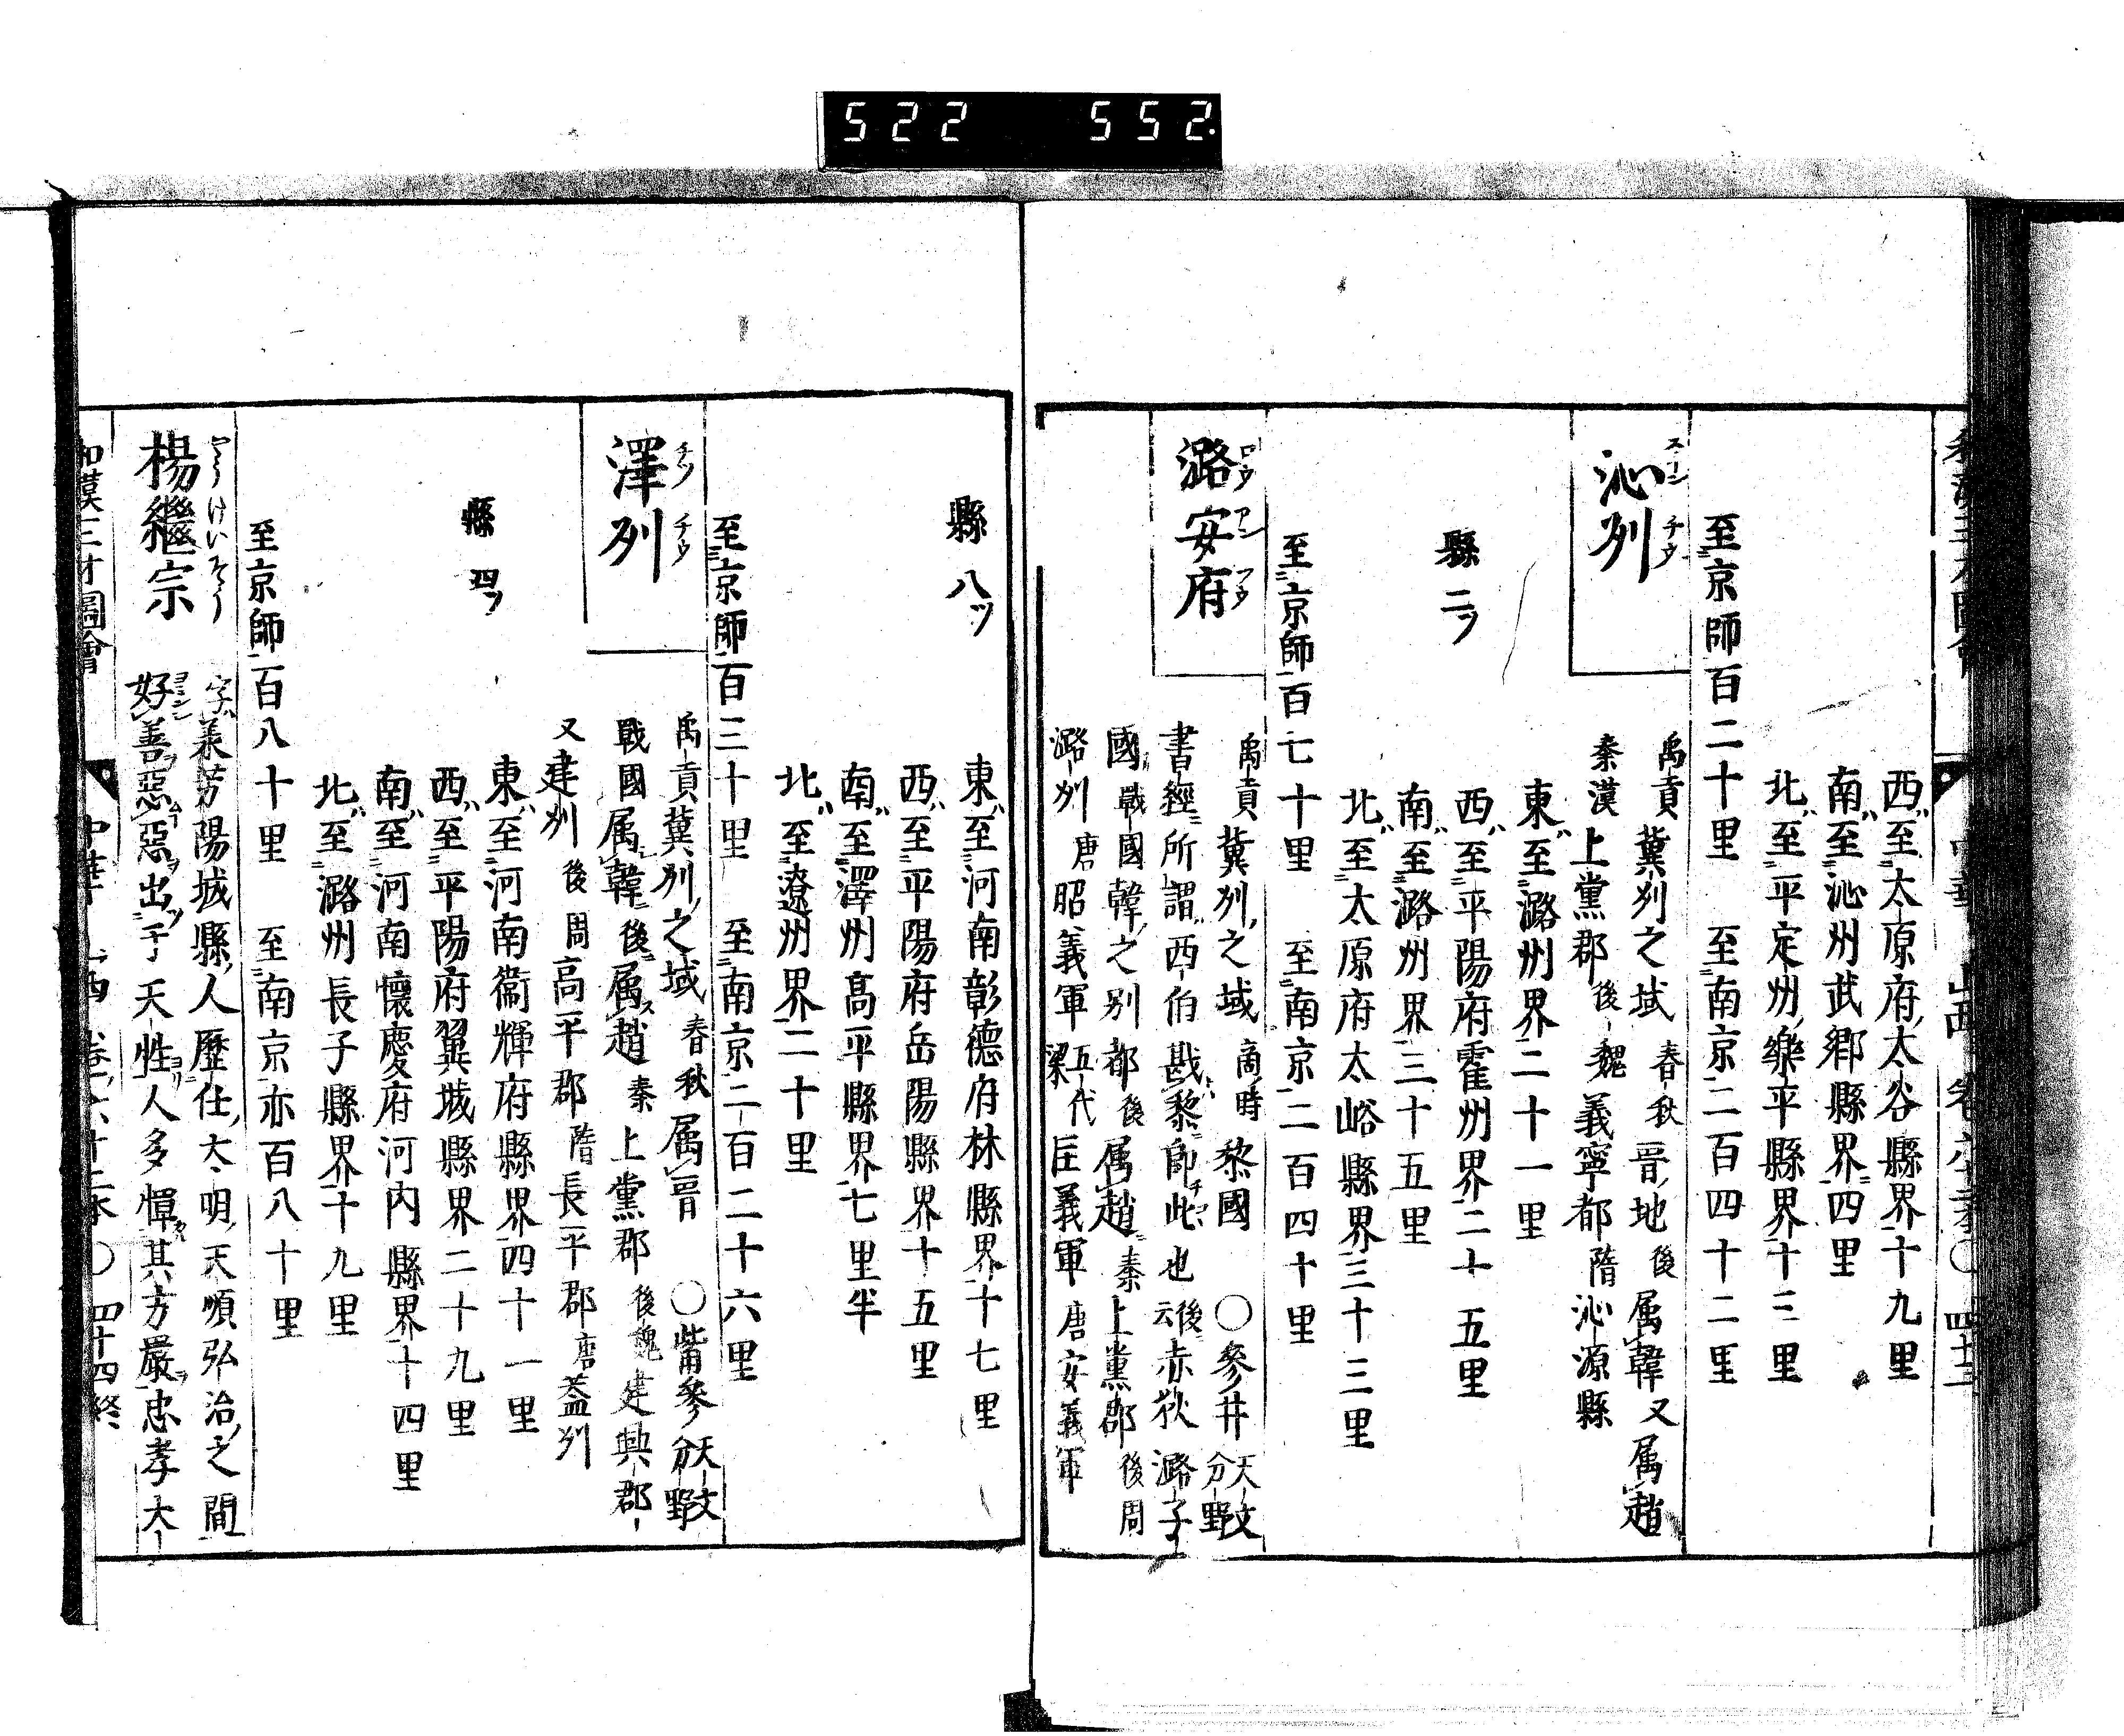 522 552.
西ハ至太原府太谷縣界十九里
南ハ至沁州武郷縣界四里
北ハ至平定州樂平縣界十三里
至京師百二十里 至南京二百四十二里
沁州
スーン チウ
禹貢冀州之域 春秋晉地 後属韓又属趙
秦漢上黨郡 後魏義寧都 隋沁源縣
縣二ツ
東ハ至潞州界二十一里
西ハ至平陽府霍州界二十五里
南ハ至潞州界三十五里
北ハ至太原府太峪縣界三十三里
至京師百七十里 至南京二百四十里
潞安府
ロウ アン フウ
禹貢冀州之域 商時黎國 ○參井 天文分野
書經所謂西伯戡黎即此也 後云赤狄潞子
國 戰國韓之別都 後属趙 秦上黨郡 後周
潞州 唐昭義軍 五代梁匡義軍 唐安義軍
縣八ツ
東ハ至河南彰德府林縣界十七里
西ハ至平陽府岳陽縣界十五里
南ハ至澤州高平縣界七里半
北ハ至遼州界二十里
至京師百三十里 至南京二百二十六里
澤州
チツ チウ
禹貢冀州之域 春秋属晉 ○觜參 天文分野
戰國属韓後属趙 秦上黨郡 後魏建興郡
又建州 後周高平郡 隋長平郡 唐蓋州
縣四ツ
東ハ至河南衞輝府縣界四十一里
西ハ至平陽府翼城縣界二十九里
南ハ至河南懷慶府河内縣界十四里
北ハ至潞州長子縣界十九里
至京師百八十里 至南京亦百八十里
楊繼宗
やうけいそう
字ハ承芳陽城縣人歷仕大明天順弘治之間
好善惡惡出于天性人多憚其方嚴忠孝大
和漢三才圖會 中華 山西 卷六十二本 ○ 四十四終